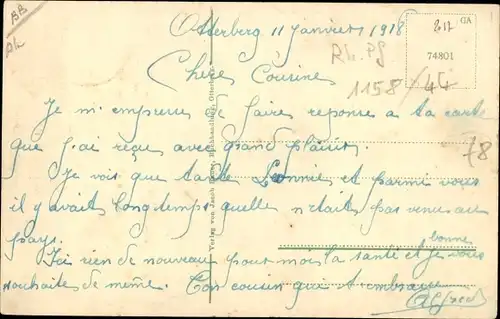 BB
Otterberg 11 Janvier 1918
217
GA
74801
Rh. Pf
1158/44
Chère Cousine
Je m'empresse de faire reponse a ta carte
que j'ai reçue avec grand plaisir.
78
Je vois que tante Leonnie et parmi vous
il y avait longtemps quelle n'etait pas venue au
pays.
bonne
Ici rien de nouveau pour moi la santé et je vous
souhaite de même. Ton cousin qui t'embrasse
Alfred
Verlag von Jacob Buchhandlung, Otterberg